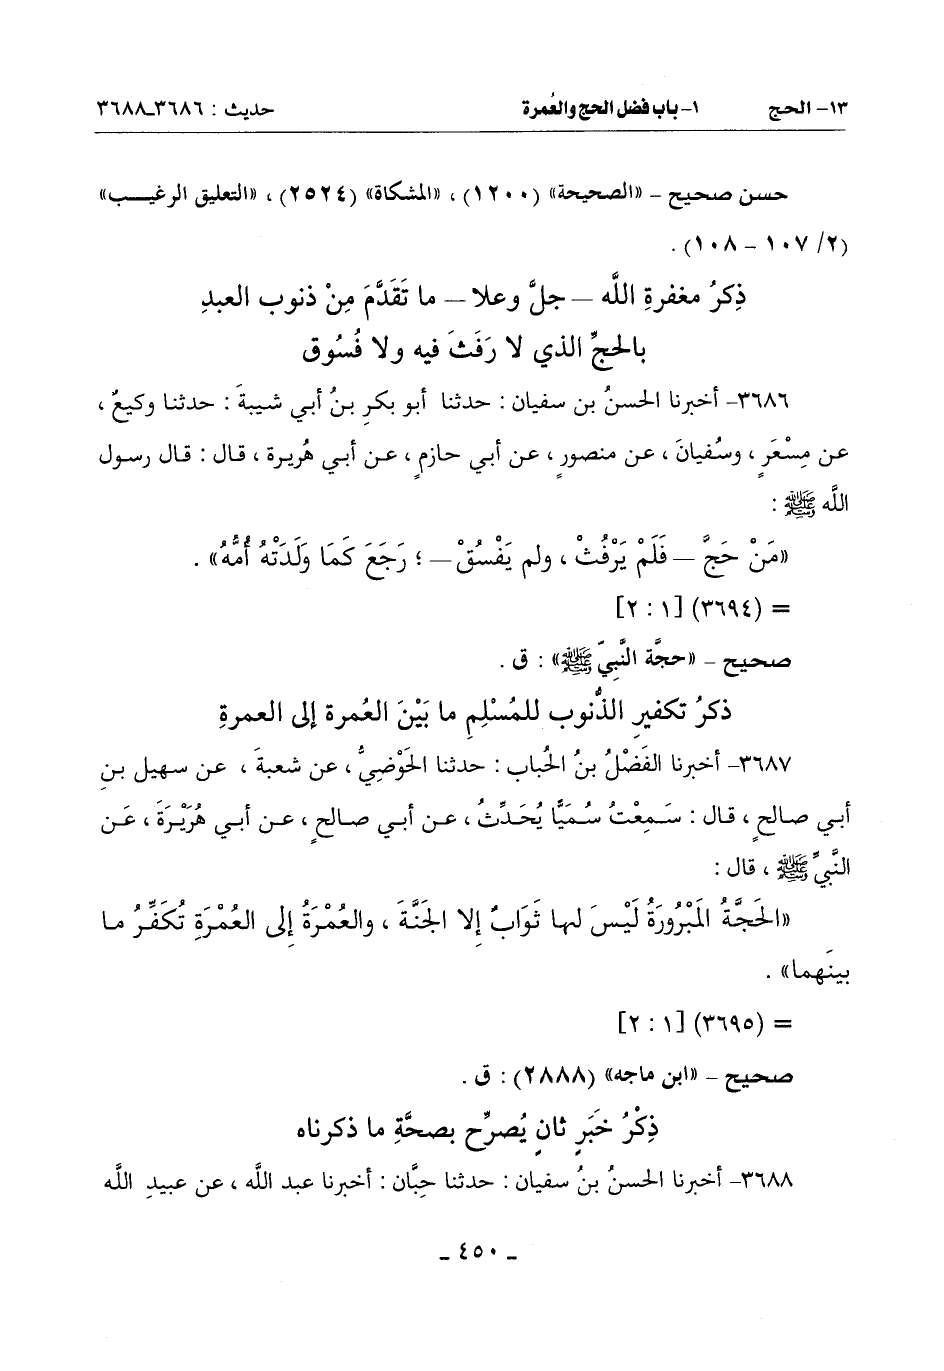 ١٣- الحج ١- باب فضل الحج والعُمرة حديث : ٣٦٨٦ـ٣٦٨٨
حسن صحيح - «الصحيحة» (١٢٠٠) ، «المشكاة» (٢٥٢٤) ، «التعليق الرغيب»
(٢/ ١٠٧ - ١٠٨) .
ذِكرُ مغفرةِ اللَّه – جلَّ وعلا – ما تَقَدَّمَ مِنْ ذنوب العبدِ
بالحجِّ الذي لا رَفَثَ فيه ولا فُسُوق
٣٦٨٦- أخبرنا الحسنُ بن سفيان : حدثنا أبو بكرِ بنُ أبي شيبةَ : حدثنا وكيعٌ ،
عن مِسْعَرٍ ، وسُفيانَ ، عن منصورٍ ، عن أبي حازمٍ ، عن أبي هُريرة ، قال : قال رسول
اللَّه ﷺ :
«مَنْ حَجَّ – فَلَمْ يَرْفُثْ ، ولم يَفْسُقْ – ؛ رَجَعَ كَمَا وَلَدَتْهُ أُمُّهُ» .
= (٣٦٩٤) [١ : ٢]
صحيح - «حجَّة النَّبيِّ ﷺ» : ق .
ذكرُ تكفيرِ الذُّنوب للمُسْلِمِ ما بَيْنَ العُمرة إلى العمرةِ
٣٦٨٧- أخبرنا الفَضْلُ بنُ الحُباب : حدثنا الحَوْضِيُّ ، عن شعبةَ ، عن سهيل بنِ
أبي صالحٍ ، قال : سَمِعْتُ سُمَيًّا يُحَدِّثُ ، عن أبي صالحٍ ، عن أبي هُرَيْرَةَ ، عَن
النَّبيِّ ﷺ ، قال :
«الحَجَّةُ المَبْرُورَةُ لَيْسَ لها ثَوَابٌ إلا الجَنَّةَ ، والعُمْرَةُ إلى العُمْرَةِ تُكَفِّرُ ما
بينَهما» .
= (٣٦٩٥) [١ : ٢]
صحيح - «ابن ماجه» (٢٨٨٨) : ق .
ذِكْرُ خَبَرٍ ثانٍ يُصرِّح بصحَّةِ ما ذكرناه
٣٦٨٨- أخبرنا الحسنُ بنُ سفيان : حدثنا حِبَّان : أخبرنا عبد اللَّه ، عن عبيدِ اللَّه
- ٤٥٠ -